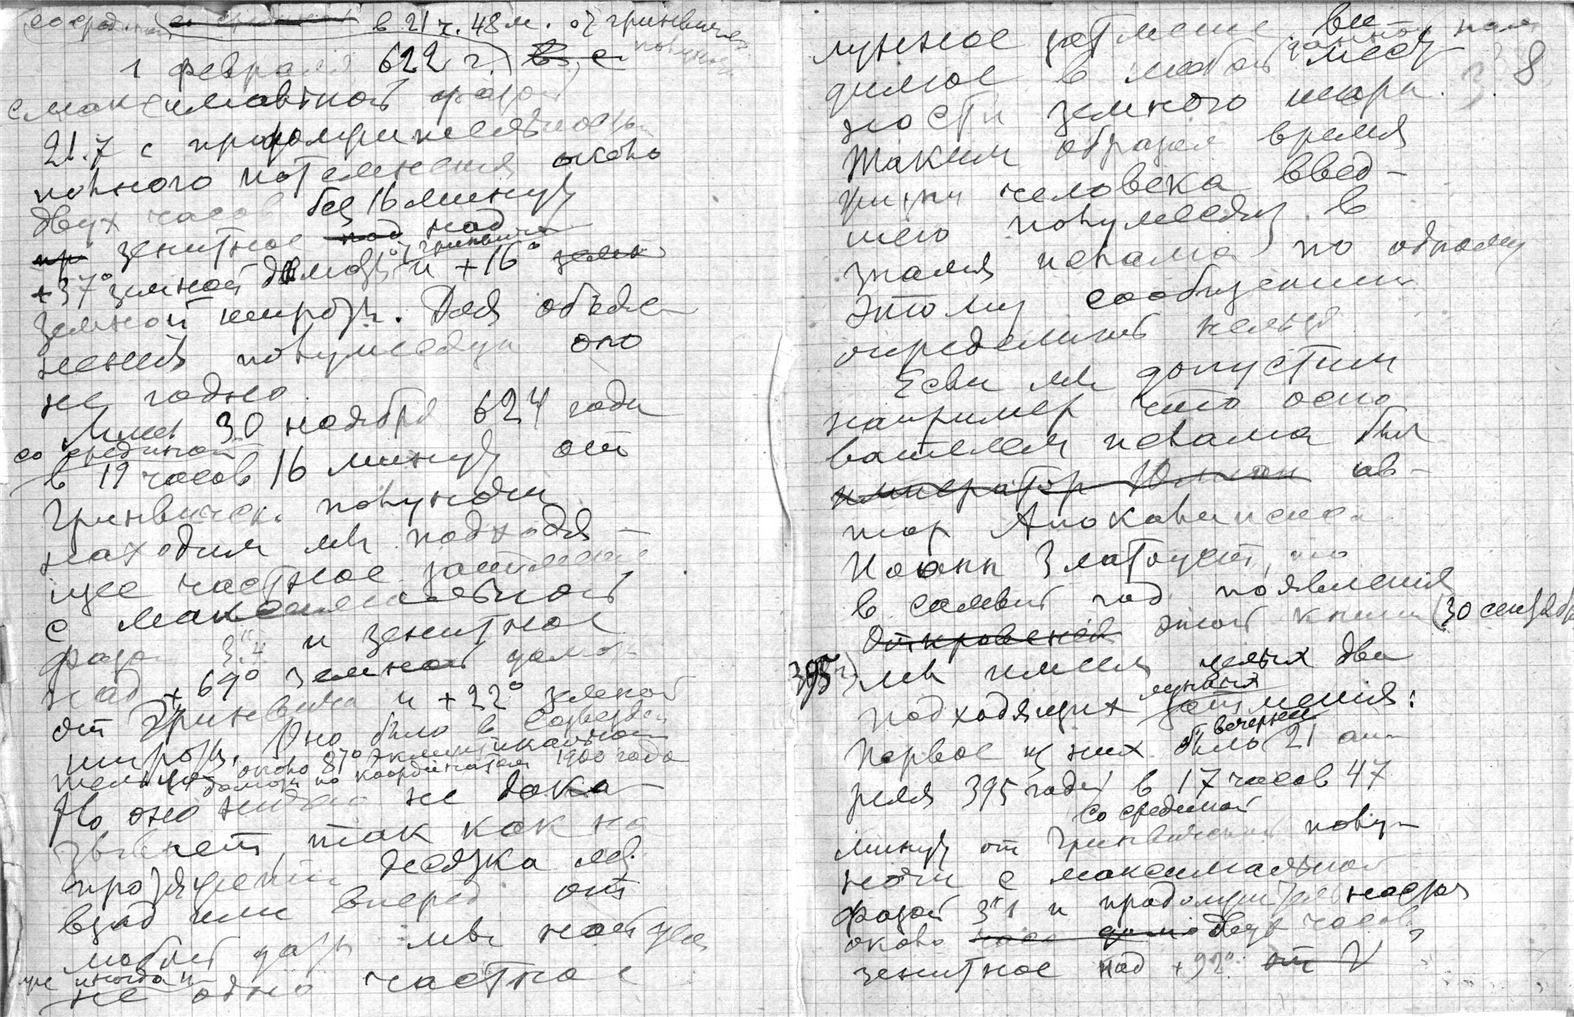 со срединой в 21 ч. 48 м. от гринвичск.
полуночи
1 февраля 622 г.) с
с максимальной фазой
21.7 с продолжительностью
полного потемнения около
двух часов без 16 минут
зенитное над
+37° земной долготы от Гринвича и +16°
земной широты. Для объяс-
нения полумесяца оно
не годно.
30 ноября 624 года
со срединой
в 19 часов 16 минут от
Гринвичск. полуночи
находим мы подходя-
щее частное затмение
с максимальной
фазой 3.4 и зенитное
над +69° земной долготы
от Гринвича и +22° земной
широты. Оно было в созвездии
Тельца около 87° эклиптикальной
долготы по координатам 1900 года
Но оно ничего не дока-
зывает, так как на
протяжении десятка лет
взад или вперед от
любой даты мы найдем
уже иногда и
не одно частное
лунное затмение, ви-
димое в любой данной мест-
ности земного шара.
38
Таким образом время
жизни человека введ-
шего полумесяц в
знамя ислама по одному
этому сообщению
определить нельзя.
Если мы допустим
например что осно-
вателем ислама был
император Юлиан ав-
тор Апокалипсиса
Иоанн Златоуст, то
в самый год появления
Откровения этой книги (30 сентября
395 г.) мы имеем целых два
подходящих лунных затмения:
Первое из них было вечернее (21 ап-
реля 395 года) в 17 часов 47
со срединой
минут от Гринвичской полу-
ночи с максимальной
фазой 3"1 и продолжительностью
около двух часов
зенитное над +92° от